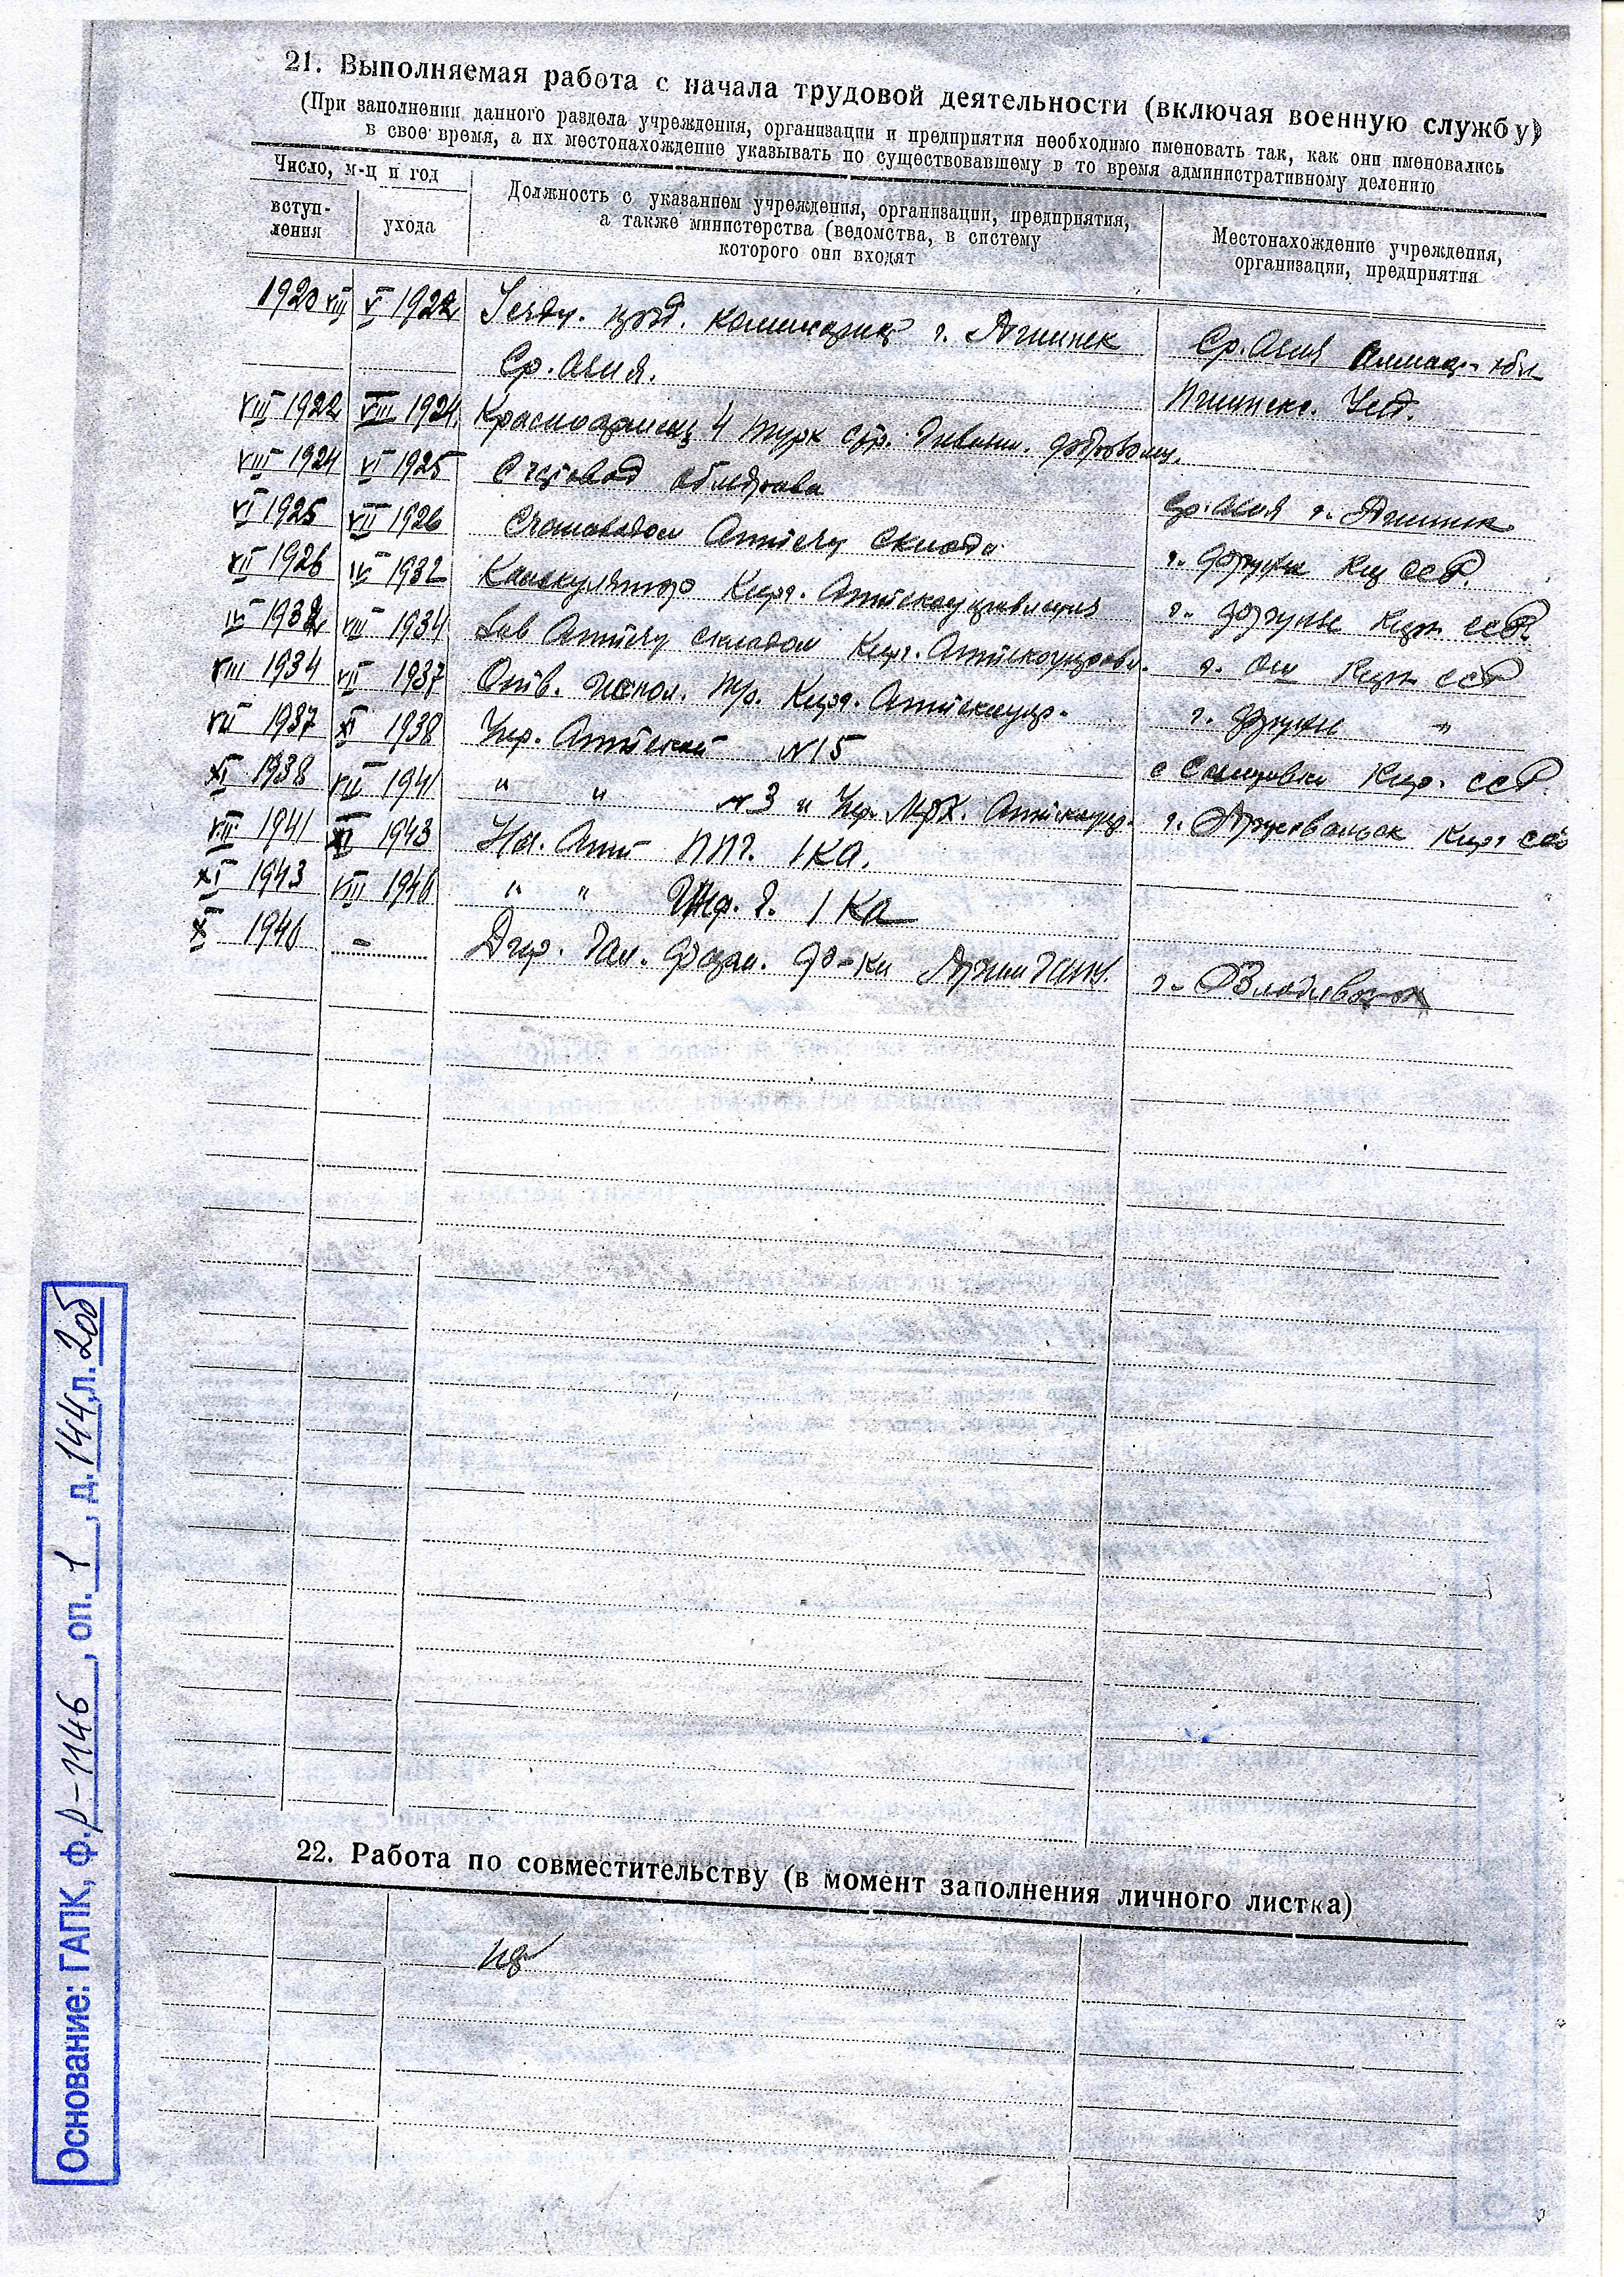 21. Выполняемая работа с начала трудовой деятельности (включая военную службу)
(При заполнении данного раздела учреждения, организации и предприятия необходимо именовать так, как они именовались
в свое время, а их местонахождение указывать по существовавшему в то время административному делению
Число, м-ц и год
вступ-
ления
ухода
Должность с указанием учреждения, организации, предприятия,
а также министерства (ведомства, в систему
которого они входят
Местонахождение учреждения,
организации, предприятия
1920 VIII V 1922 г. Пишпек Ср. Азия обл
Ср. Азия. Пишпекс. Уезд.
VIII 1922 VIII 1924 Красноармеец 4 Турк стр. доброволец.
VIII 1924 VI 1925 Счетовод Ср. Азия г. Пишпек
VI 1925 VII 1926 Счетоводом Аптечн склада г. Фрунзе Кир ССР.
VII 1926 IV 1932 Калькулятор Кирг. Аптекоуправления г. Фрунзе Кирг ССР.
IV 1932 VIII 1934 Зав Аптечн складом Кирг. Аптекоуправл. г. Ош Кирг ССР
VIII 1934 VII 1937 Отв. Испол. Кирг. Аптекоупр. г. Фрунзе "
VII 1937 XI 1938 Упр. Аптекой №15 с Кир. ССР.
XI 1938 VII 1941 " " №3 и Упр. Аптекоупр. г. Пржевальск Кирг ССР
VIII 1941 XI 1943 Нач. Апт ППГ. 1 КА.
XI 1943 VIII 1946 " " Инф. Г. 1 КА
X 1946 - Дир. Гал. Фарм. Ф-ки г. Владивосток
22. Работа по совместительству (в момент заполнения личного листка)
нет
Основание: ГАПК, ф. Р-1146, оп. 1, д. 144, л. 2об